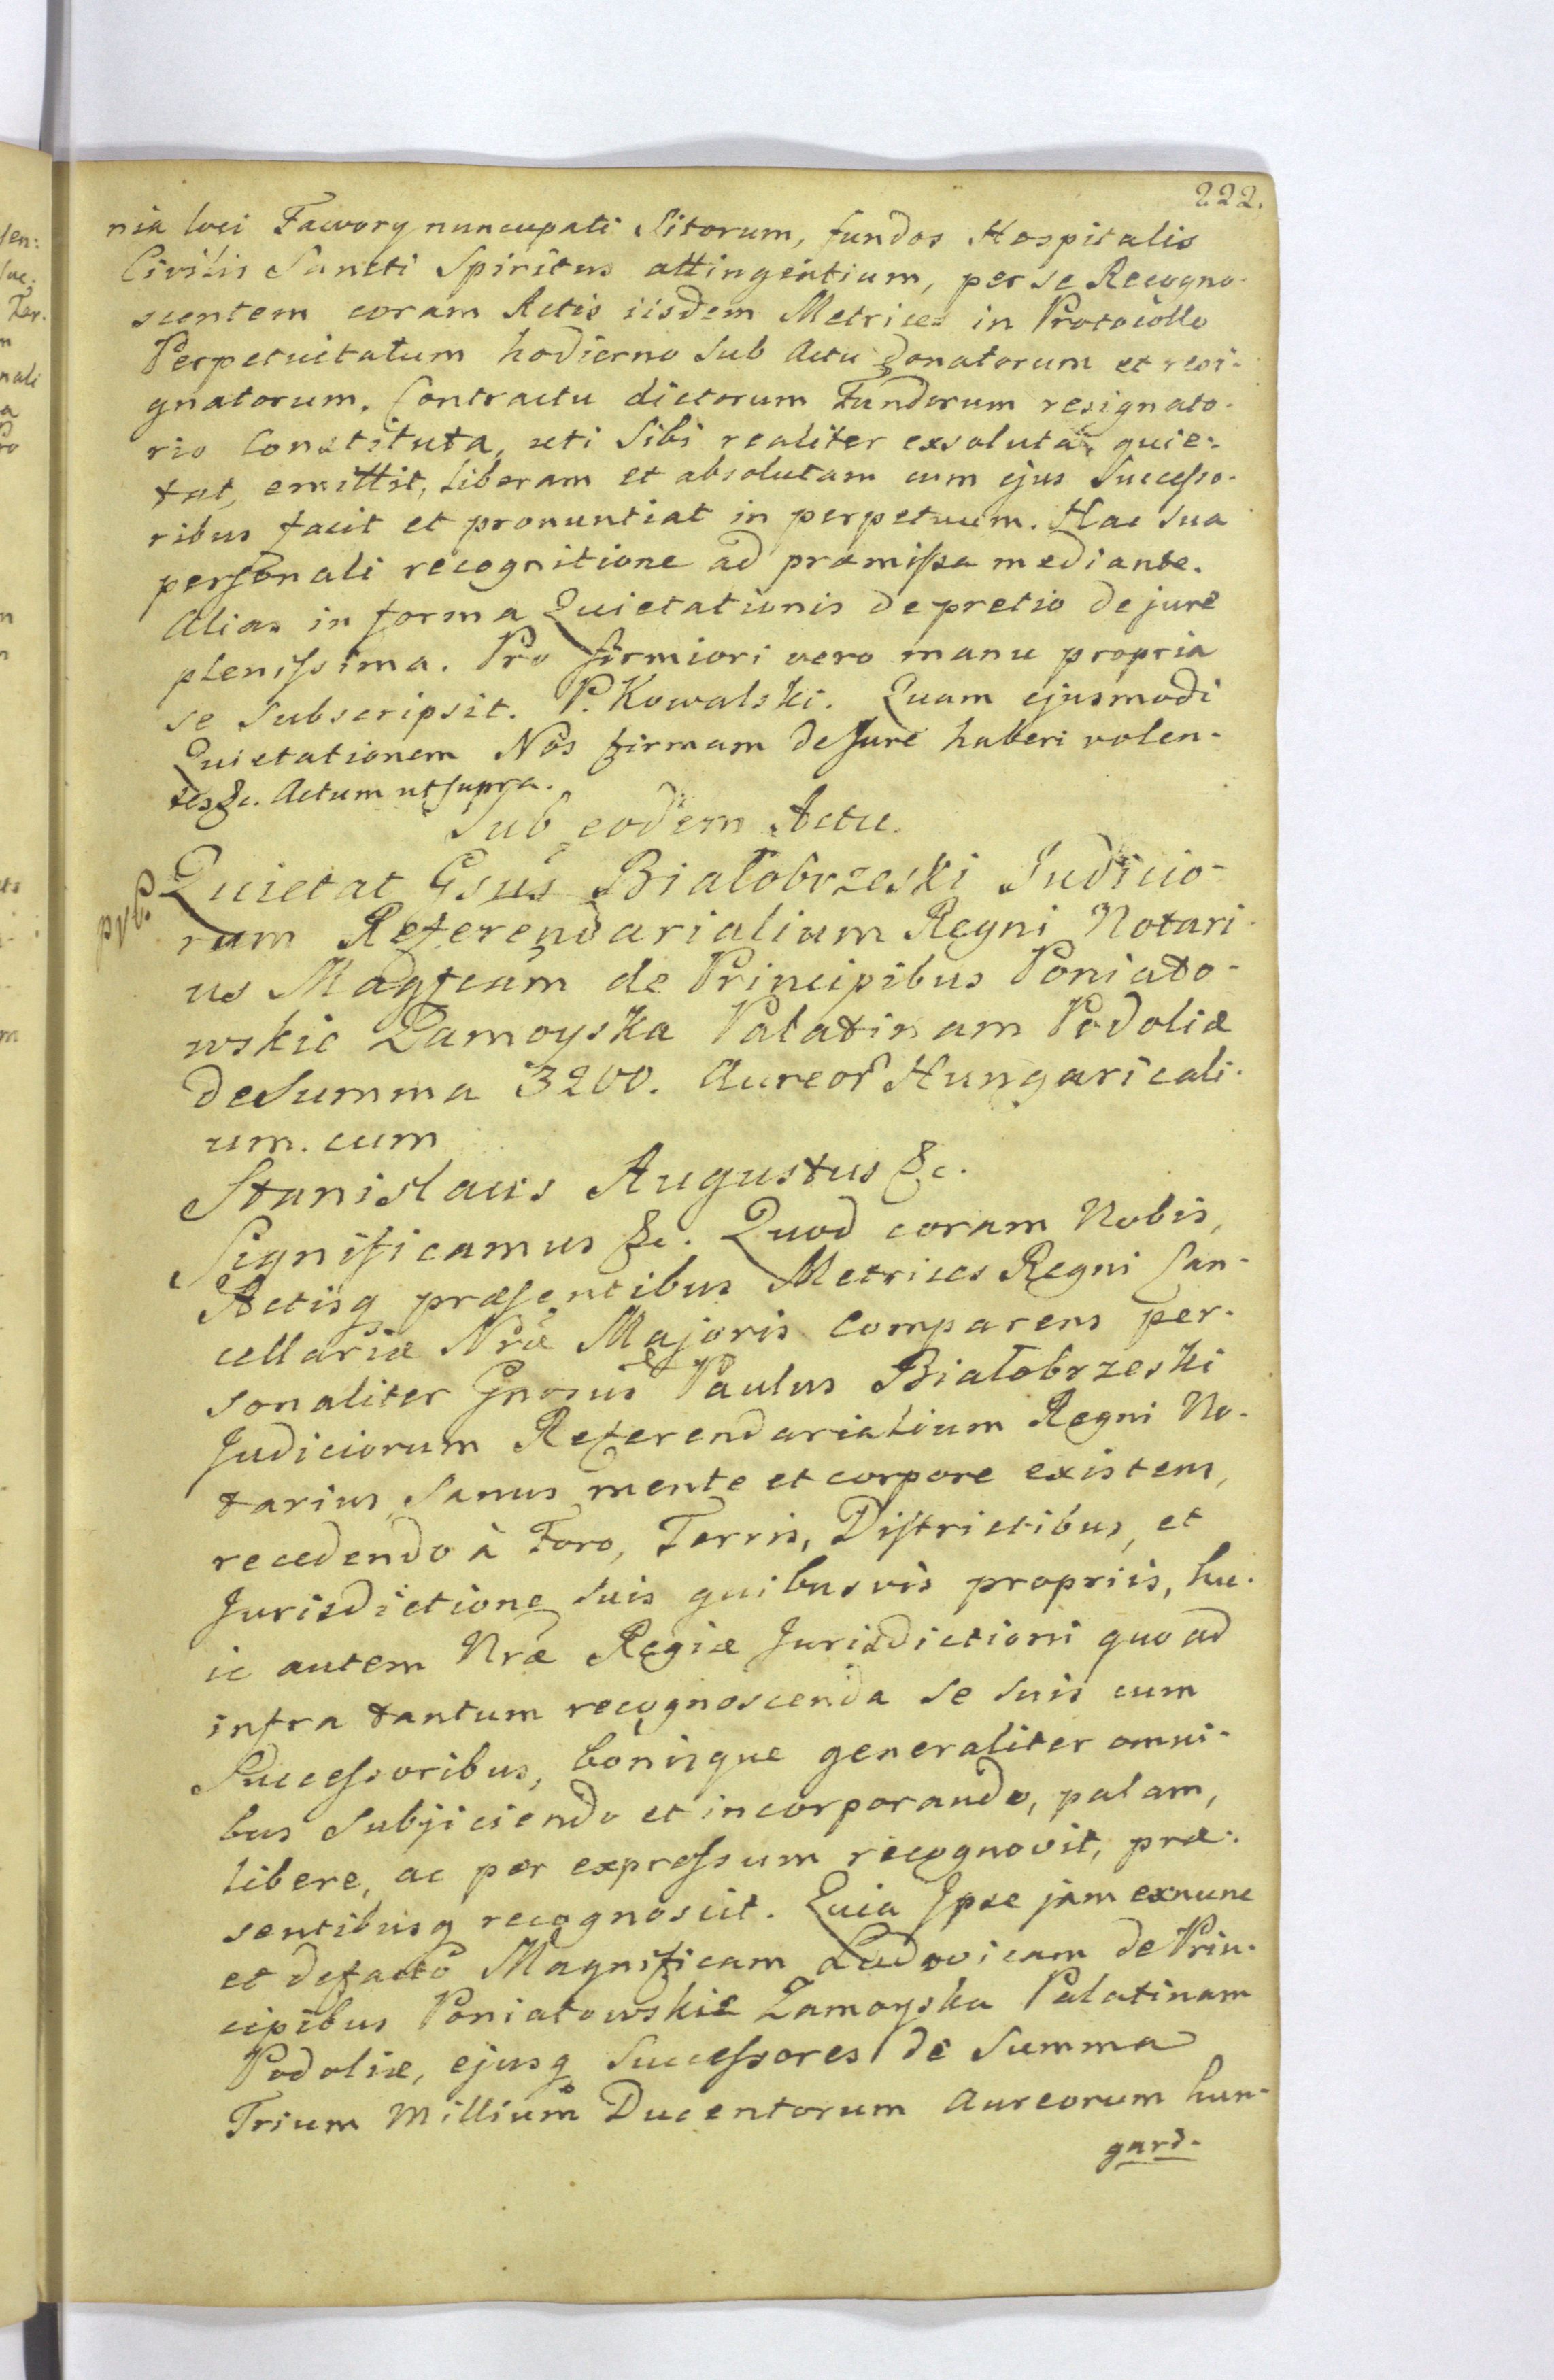 222.
nia loci Fawory nuncupati Sitorum, fundos Hospitalis
Civilis Sancti Spiritus attingentium, per se Recogno-
scentem coram Actis iisdem Metrices in Protocollo
Perpetuitatum hodierno sub Actu donatorum et resi-
gnatorum. Contractu dictorum Fundorum resignato-
rio Constituta, uti Sibi realiter exsoluta, quie-
tat, emittit, liberam et absolutam cum ejus Successo-
ribus facit et pronuntiat in perpetuum. Hac sua
personali recognitione ad præmissa mediante.
Alias in forma Quietationis de pretio de jure
plenissima. Pro firmiori vero manu propria
se subscripsit. P. Kowalski. Quam ejusmodi
Quietationem Nos firmam de Jure haberi volen-
tes &c. Actum ut supra.
Sub eodem Actu.
Quietat Gsus Białobrzeski Judicio-
rum Referendarialium Regni Notari-
us Magfcam de Principibus Poniato-
wskie Zamoyska Palatinam Podoliæ
de Summa 3200. Aureor Hungaricali-
um. cum
Stanislaus Augustus &c.
Significamus &c. Quod coram Nobis,
Actisq præsentibus Metrices Regni Can-
cellariæ Nræ Majoris Comparens per-
sonaliter Gnosus Paulus Białobrzeski
Judiciorum Referendarialium Regni No-
tarius, Sanus mente et corpore existens,
recedendo à Foro, Terris, Districtibus, et
Jurisdictione suis quibusvis propriis, hu-
ic autem Nræ Regiæ Jurisdictioni quo ad
infra tantum recognoscenda se suis cum
Successoribus, bonisque generaliter omni-
bus Subjiciendo et incorporando, palam,
libere, ac per expressum recognovit, præ-
sentibusq recognoscit. Quia Ipse jam exnunc
et defacto Magnificam Ludovicam de Prin-
cipibus Poniatowskie Zamoyska Palatinam
Podoliæ, ejusq Successores de Summa
Trium Millium Ducentorum Aureorum hun-
gari-